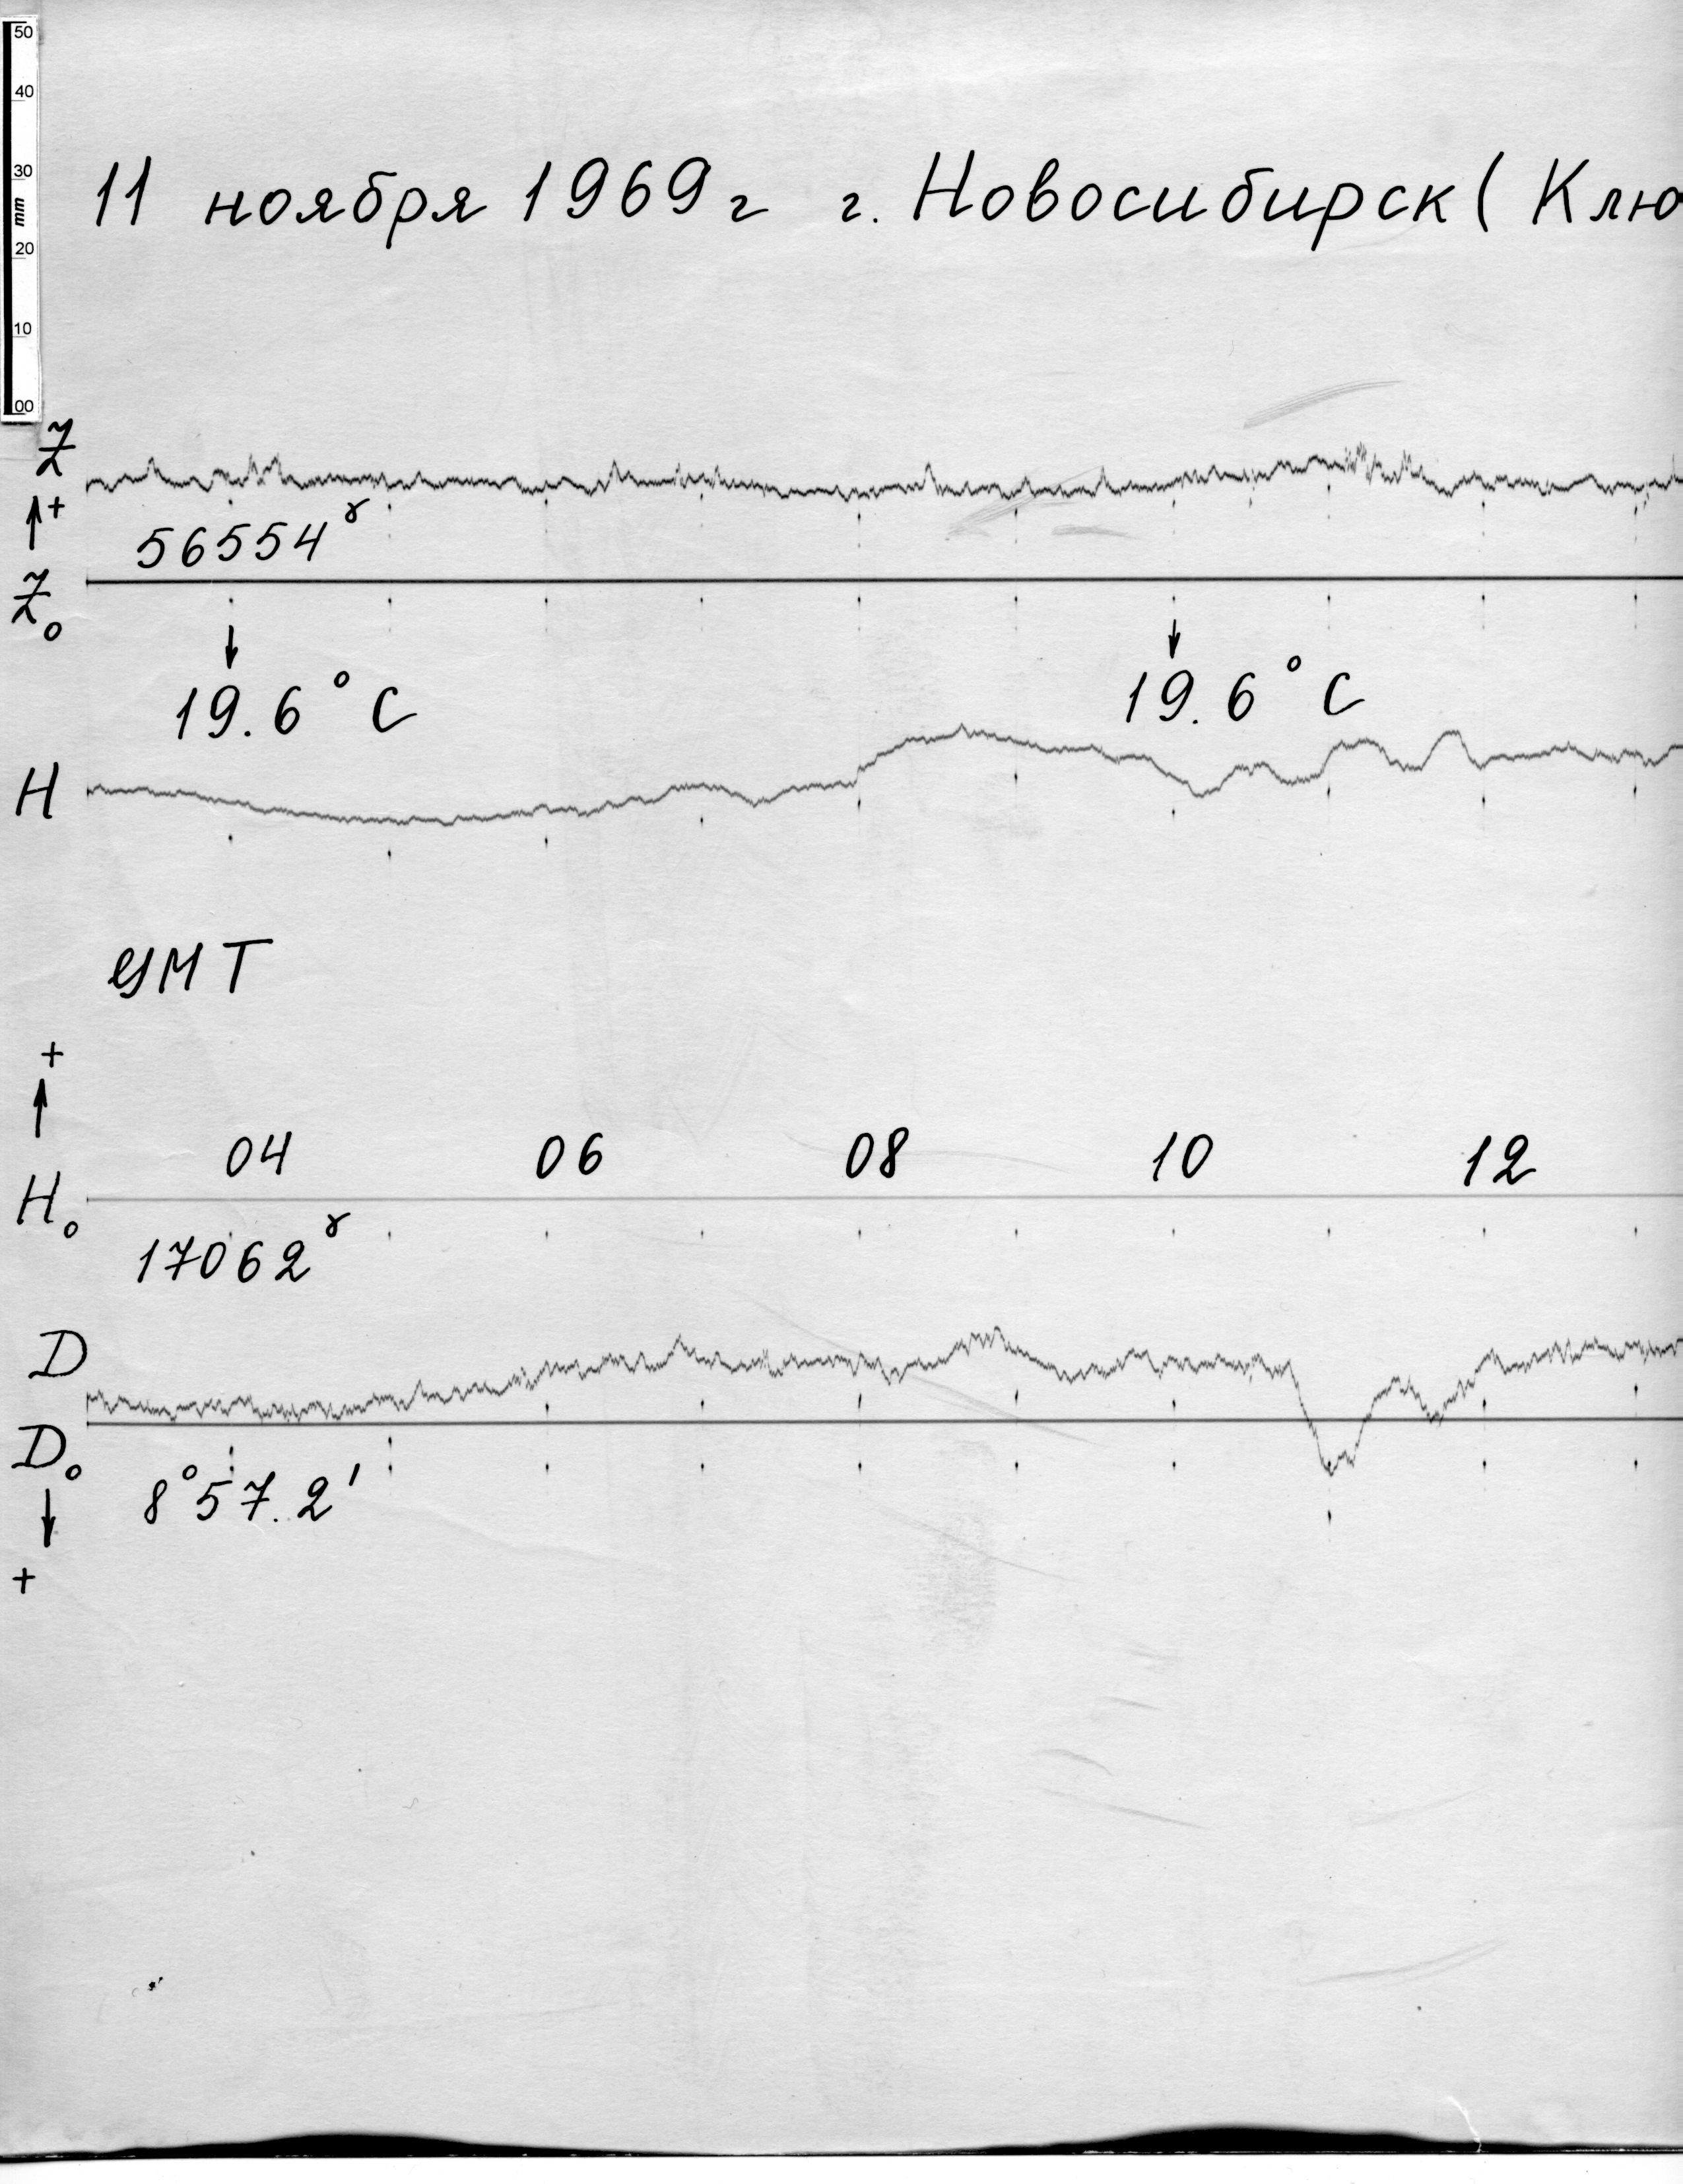 50
40
30
mm
20
10
00
11 ноября 1969г г. Новосибирск (Клю
Z
↑+
56554ᵞ
Z₀
↓ ↓
19.6°C 19.6°C
H
УМТ
+
↑
04 06 08 10 12
H₀
17062ᵞ
D
D₀
8°57.2'
↓
+